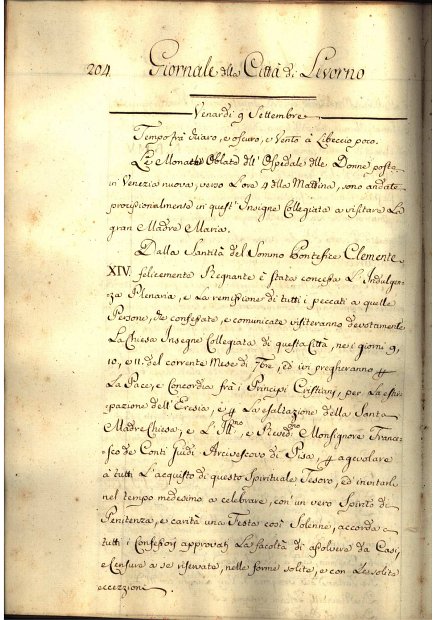 204 Giornale della Città di Livorno
Venardi 9 Settembre
Tempo frà chiaro, e oscuro, e Vento à Libeccio poco.
Le Monache Oblate dell' Ospedale delle Donne posto
in Venezia nuova, verso l'ore 4 della Mattina, sono andate
provisionalmente in quest' Insigne Collegiata a visitare La
gran Madre Maria.
Dalla Santità del Sommo Pontefice Clemente
XIV. felicemente Regnante è stata concessa L'Indulgen-
za Plenaria, e La remissione di tutti i peccati a quelle
Persone, che confessate, e comunicate visiteranno devotamente
La Chiesa Insegne Collegiata di questa Città, ne i giorni 9,
10, e 11. del corrente Mese di 7bre, ed ivi pregheranno
La Pace, e Concordia frà i Principi Cristiani, per La estir-
pazione dell' Eresia, e La esaltazione della Santa
Madre Chiesa, e L' Ill.mo e Revd.mo Monsignore France-
sco de Conti Guidi Arcivescovo di Pisa, agevolare
à tutti L'acquisto di questo Spirituale Tesoro, ed invitarli
nel tempo medesimo a celebrare, con un vero Spirito di
Penitenza, e carità una Festa così Solenne, accorda a
tutti i Confessori approvati La facoltà di assolvere da Casi,
e Censure a se riservate, nelle forme solite, e con Le solite
eccezzioni.